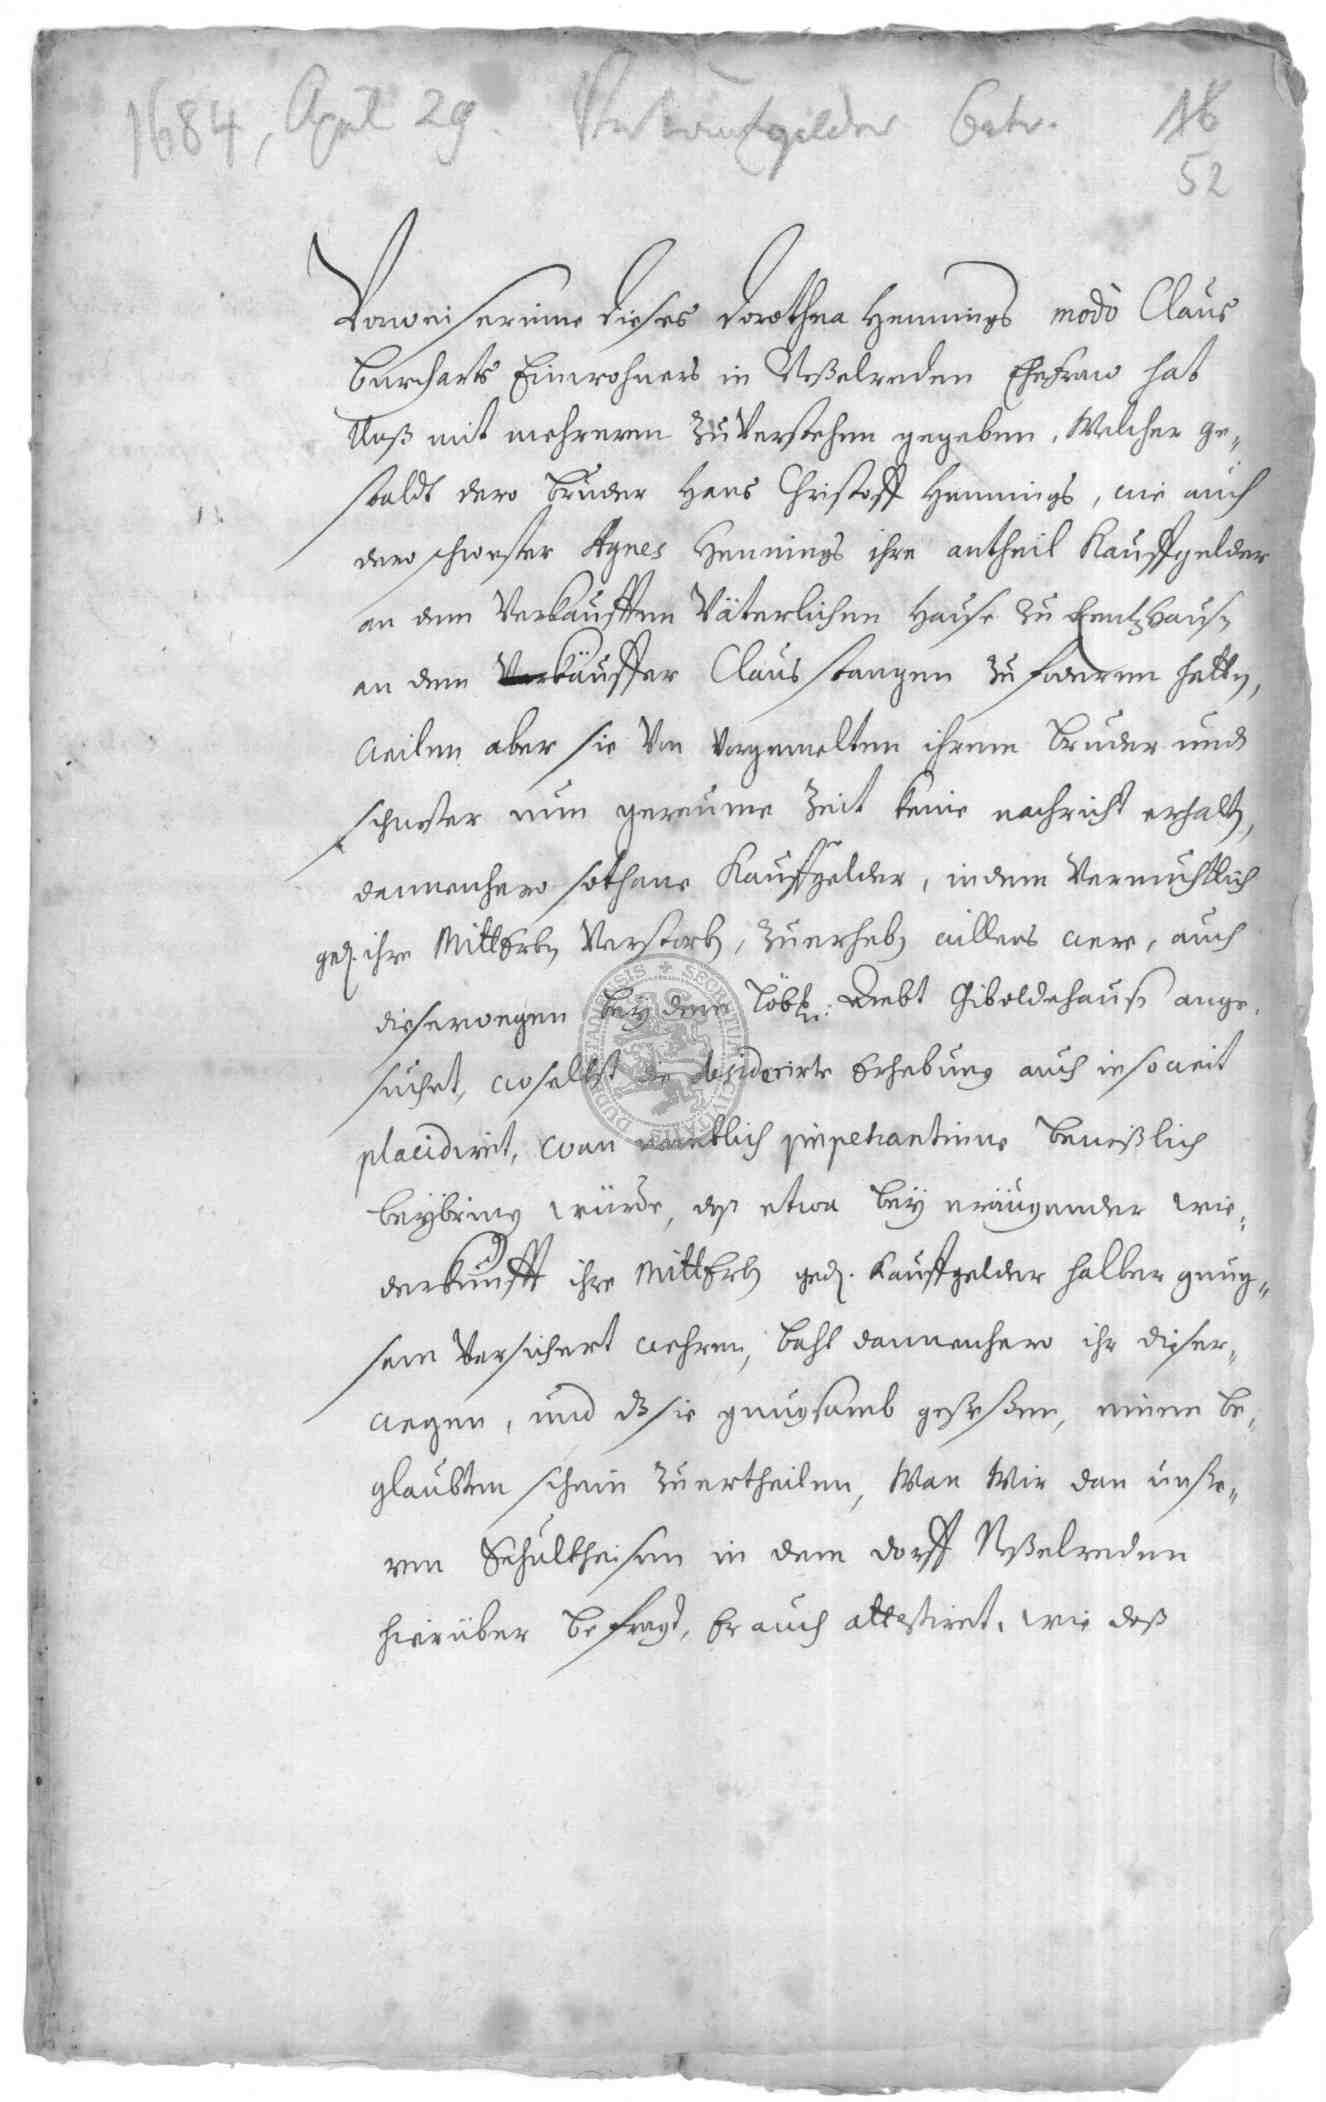 1684, April 29. Verkaufgelder betr.
52
Vorweiserinne dieses Dorothea Hennings modò Claus
Burcharts Einwohners in Neßelreden Ehefraw hat
Unß mit mehreren zu Verstehen gegeben, Welcher ge„
staldt dero Bruder Hans Christoff Hennings, wie auch
dero schwester Agnes Hennings ihre antheil Kauffgelder
an dem Verkaufften Väterlichen Hause zu
an dem käuffer Claus stangen zu foderen hetten,
weilen aber sie Von Vorgemelten ihrem Bruder und
schwester nun geraume Zeit keine nachricht erhalten,
dannenhero sothane Kauffgelder, indem Vermuhtlich
ged. ihre MittErben Verstorben, zuerheben willens were, auch
dieserwegen bey dem löbl: Ambt Giboldehauß ange„
suchet, woselbst die desiderirte Erhebung auch in soweit
placidiret, wan nemblich Impetrantinne beweißlich
beybringen würde, daß etwa bey eräugender wie„
derkunfft ihre MittErben ged. Kauffgelder halber gnug„
sam Versichert wehren, Baht dannenhero ihr dieser„
wegen, und dß sie gnugsamb geseßen, einen be„
glaubten schein zuertheilen, Wan Wir dan unße„
ren Schultheisen in dem dorff Neßelreden
hierüber befragt, Er auch attestiret, wie daß